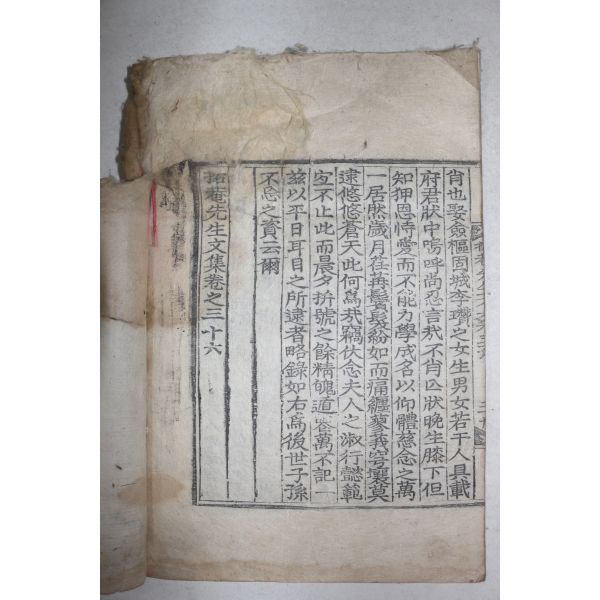 肖也娶僉樞固城李之女生男女若干人具載
府君狀中嗚呼尚忍言哉不肖亾狀晩生膝下但
知狎恩恃愛而不能力學成名以仰體慈念之萬
一居然歲月荏苒鬢髮紛如而痛纏蓼莪穹壤莫
逮悠悠蒼天此何爲哉竊伏念夫人之淑行懿範
宲不止此而晨夕拚號之餘精魄遁萬不記一
玆以平日耳目之所逮者略錄如右爲後世子孫
不忘之資云爾
拓菴先生文集卷之三十六